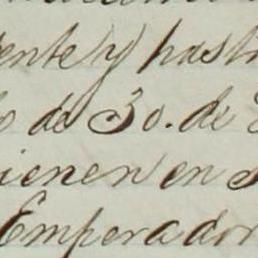 ente y hast
de 30. de
ienen en
Emperador